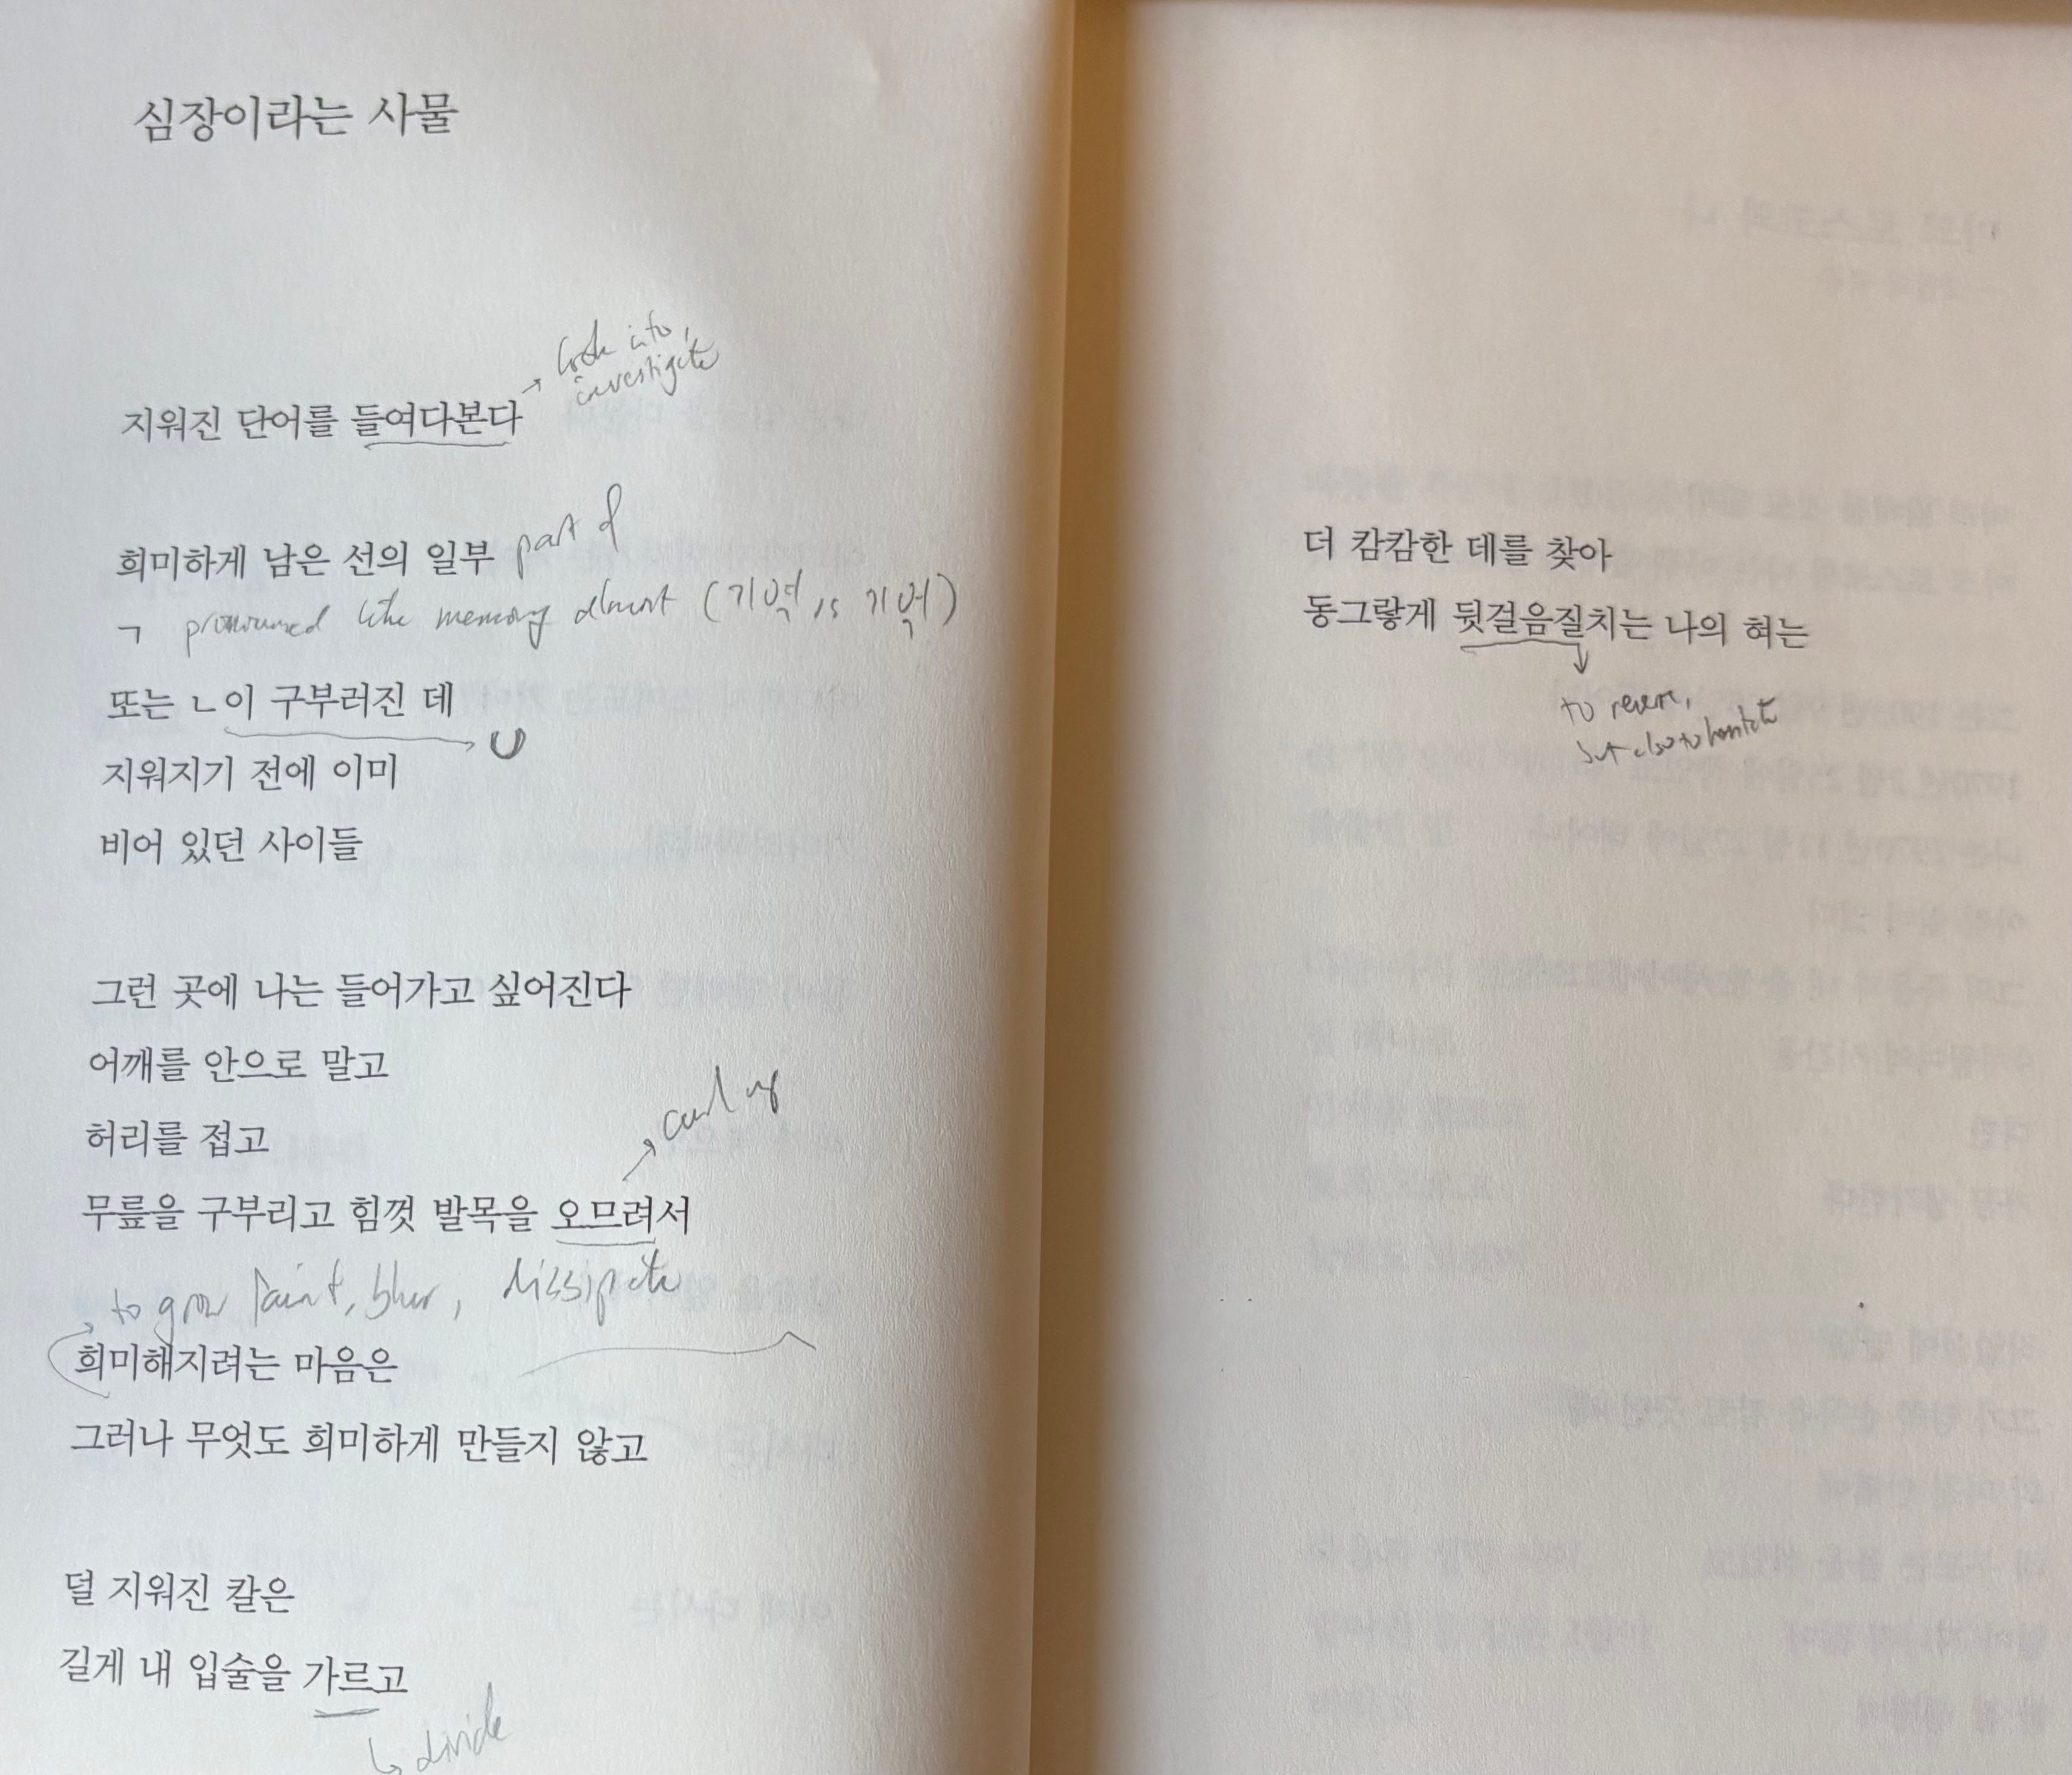 심장이라는 사물
look into,
investigate
지워진 단어를 들여다본다
희미하게 남은 선의 일부 part of
ㄱ pronounced like memory almost (기역 is 기억)
또는 ㄴ이 구부러진 데
지워지기 전에 이미
비어 있던 사이들
그런 곳에 나는 들어가고 싶어진다
어깨를 안으로 말고
허리를 접고
curl up
무릎을 구부리고 힘껏 발목을 오므려서
to grow faint, blur, dissipate
희미해지려는 마음은
그러나 무엇도 희미하게 만들지 않고
덜 지워진 칼은
길게 내 입술을 가르고
divide
더 캄캄한 데를 찾아
동그랗게 뒷걸음질치는 나의 혀는
to reverse,
but also to hesitate